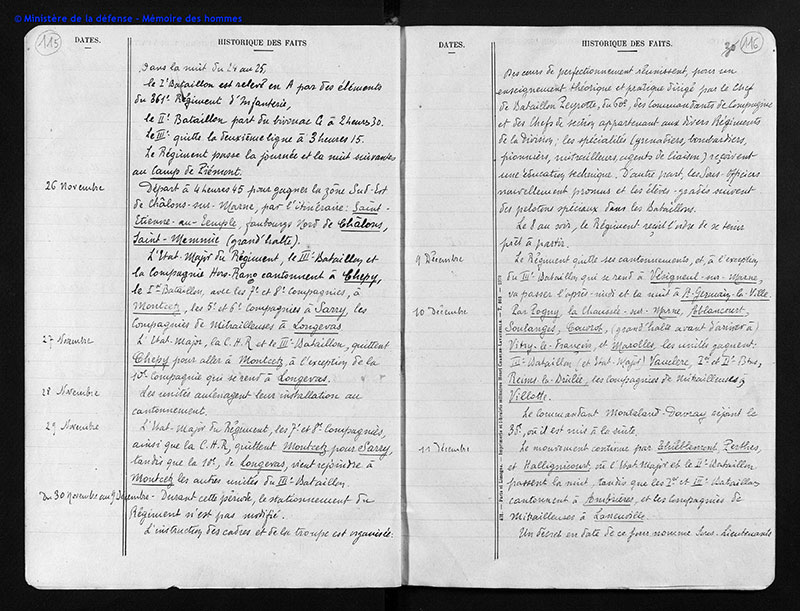 © Ministère de la défense - Mémoire des hommes
115
DATES.
HISTORIQUE DES FAITS
Dans la nuit du 24 au 25,
le 1er Bataillon est relevé en A par des éléments
du 361e Régiment d'Infanterie,
le IIe Bataillon part du bivouac C à 2 heures 30.
Le IIIe quitte la deuxième ligne à 3 heures 15.
Le Régiment passe la journée et la nuit suivantes
au Camp de Piémont.
26 Novembre
Départ à 4 heures 45 pour gagner la zône Sud-Est
de Châlons-sur-Marne, par l'itinéraire: Saint-
Etienne-au-Temple, faubourgs Nord de Châlons,
Saint-Memmie (grand'halte).
L'Etat-Major du Régiment, le IIIe Bataillon et
la Compagnie Hors-Rang cantonnent à Chepy,
le Ier Bataillon, avec les 7e et 8e Compagnies, à
Montcetz, les 5e et 6e Compagnies à Sarry, les
Compagnies de Mitrailleuses à Longevas.
27 Novembre
L'Etat-Major, la C.H.R et le IIIe Bataillon, quittent
Chepy pour aller à Montcetz à l'exception de la
10e Compagnie qui se rend à Longevas.
28 Novembre
Les unités aménagent leur installation au
cantonnement.
29 Novembre
L'Etat-Major du Régiment, les 7e et 8e Compagnies,
ainsi que la C.H.R, quittent Montcetz pour Sarry,
tandis que la 10e, de Longevas, vient rejoindre à
Montcetz les autres unités du IIIe Bataillon.
Du 30 Novembre au 9 Décembre - Durant cette période, le stationnement du
Régiment n'est pas modifié.
L'instruction des cadres et de la troupe est organisée:
116
DATES.
HISTORIQUE DES FAITS.
Des cours de perfectionnement réunissent, pour un
enseignement théorique et pratique dirigé par le Chef
de Bataillon Peyrotte, du 60e, des Commandants de Compagnie
et des Chefs de section appartenant aux divers Régiments
de la Division; les spécialités (grenadiers, bombardiers,
pionniers, mitrailleurs, agents de liaison) reçoivent
une éducation technique. D'autre part, les Sous-Officiers
nouvellement promus et les élèves-gradés suivent
des pelotons spéciaux dans les Bataillons.
Le 8 au soir, le Régiment reçoit l'ordre de se tenir
prêt à partir.
9 Décembre
Le Régiment quitte ses cantonnements, et, à l'exception
du IIIe Bataillon qui se rend à Vésigneul-sur-Marne,
va passer l'après-midi et la nuit à St Germain-la-Ville.
10 Décembre
Par Pogny, la Chaussée-sur-Marne, Ablancourt,
Soulanges, Couvrot, (grand'halte avant d'arriver à)
Vitry-le-François, et Marolles, les unités gagnent:
IIIe Bataillon (et Etat-Major) Vauclerc, Ier et IIe Btns,
Reims-la-Brûlée, les Compagnies de mitrailleuses,
Villotte.
Le Commandant rejoint le
35e, où il est mis à la suite.
11 Décembre
Le mouvement continue par Thiéblemont, Perthes,
et Hallignicourt où l'Etat-Major et le IIe Bataillon
passent la nuit, tandis que les Ier et IIIe Bataillons
cantonnent à Ambrières, et les Compagnies de
Mitrailleuses à Laneuville.
Un décret en date de ce jour nomme Sous-Lieutenants